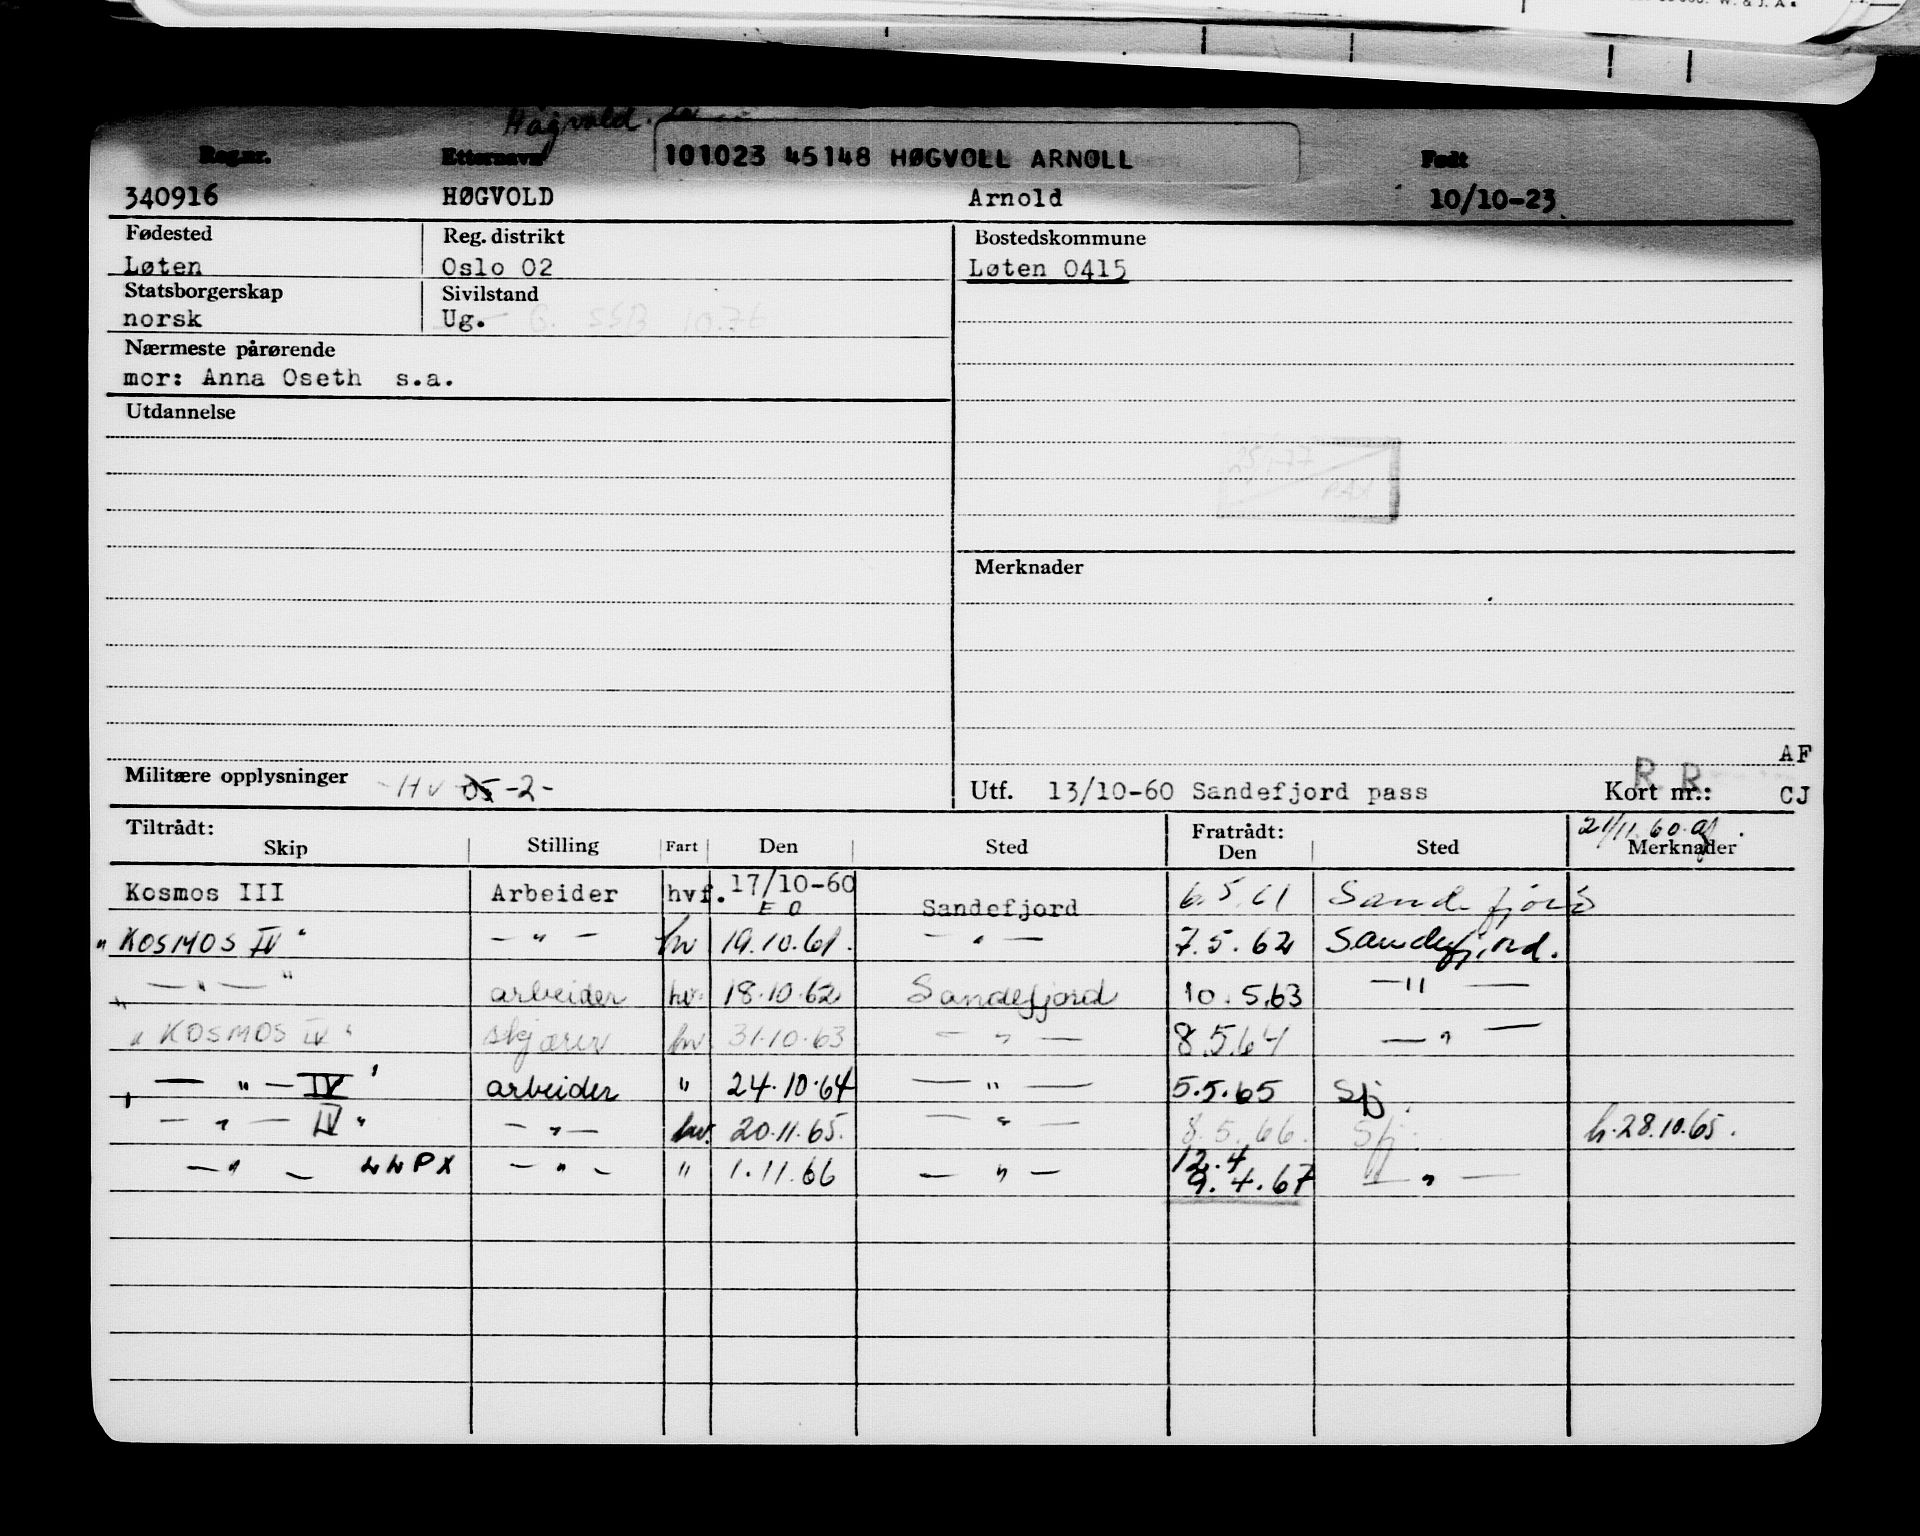 Høgvold.
Reg.nr. Etternavn 101023 45148 HØGVOLL ARNOLL Født
340916 HØGVOLD Arnold 10/10-23
Fødested Reg. distrikt Bostedskommune
Løten Oslo 02 Løten 0415
Statsborgerskap Sivilstand
norsk Ug. G. SSB 10.76
Nærmeste pårørende
mor: Anna Oseth s.a.
Utdannelse
25/1-77
Merknader
AF
R R
Militære opplysninger -HV 05 -2- Utf. 13/10-60 Sandefjord pass Kort nr.: CJ
Tiltrådt: Fratrådt: 21/11.60.
Skip Stilling Fart Den Sted Den Sted Merknader
Kosmos III Arbeider hvf. 17/10-60 EO Sandefjord 6.5.61 Sandefjord
"KOSMOS IV" — " — hv 19.10.61. — " — 7.5.62 Sandefjord.
" — " — " arbeider hv. 18.10.62 Sandefjord 10.5.63 — " —
"KOSMOS IV" skjærer hv. 31.10.63 — " — 8.5.64 — " —
' — " — IV ' arbeider " 24.10.64 — " — 5.5.65 Sfj.
— " — IV " — " — hv. 20.11.65. — " — 8.5.66. Sfj. h.28.10.65.
— " — LLPX — " — " 1.11.66 — " — 12.4 9.4.67 — " —